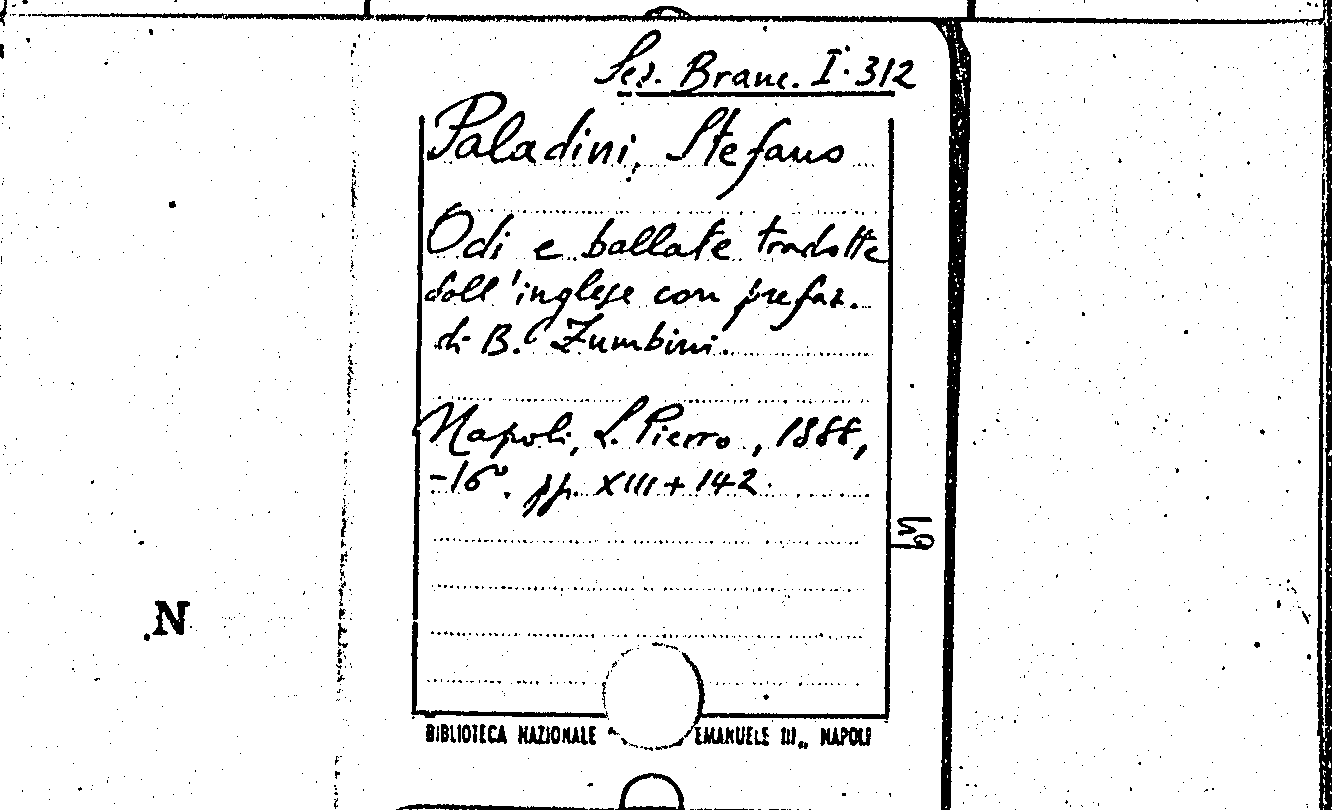 Sez. Branc. I. 312
Paladini, Stefano
Odi e ballate tradotte
dall'inglese con prefaz.
di B. Zumbini.
Napoli, L. Pierro, 1888,
-16°. pp. XIII + 142.
N
BIBLIOTECA NAZIONALE " EMANUELE III„ NAPOLI